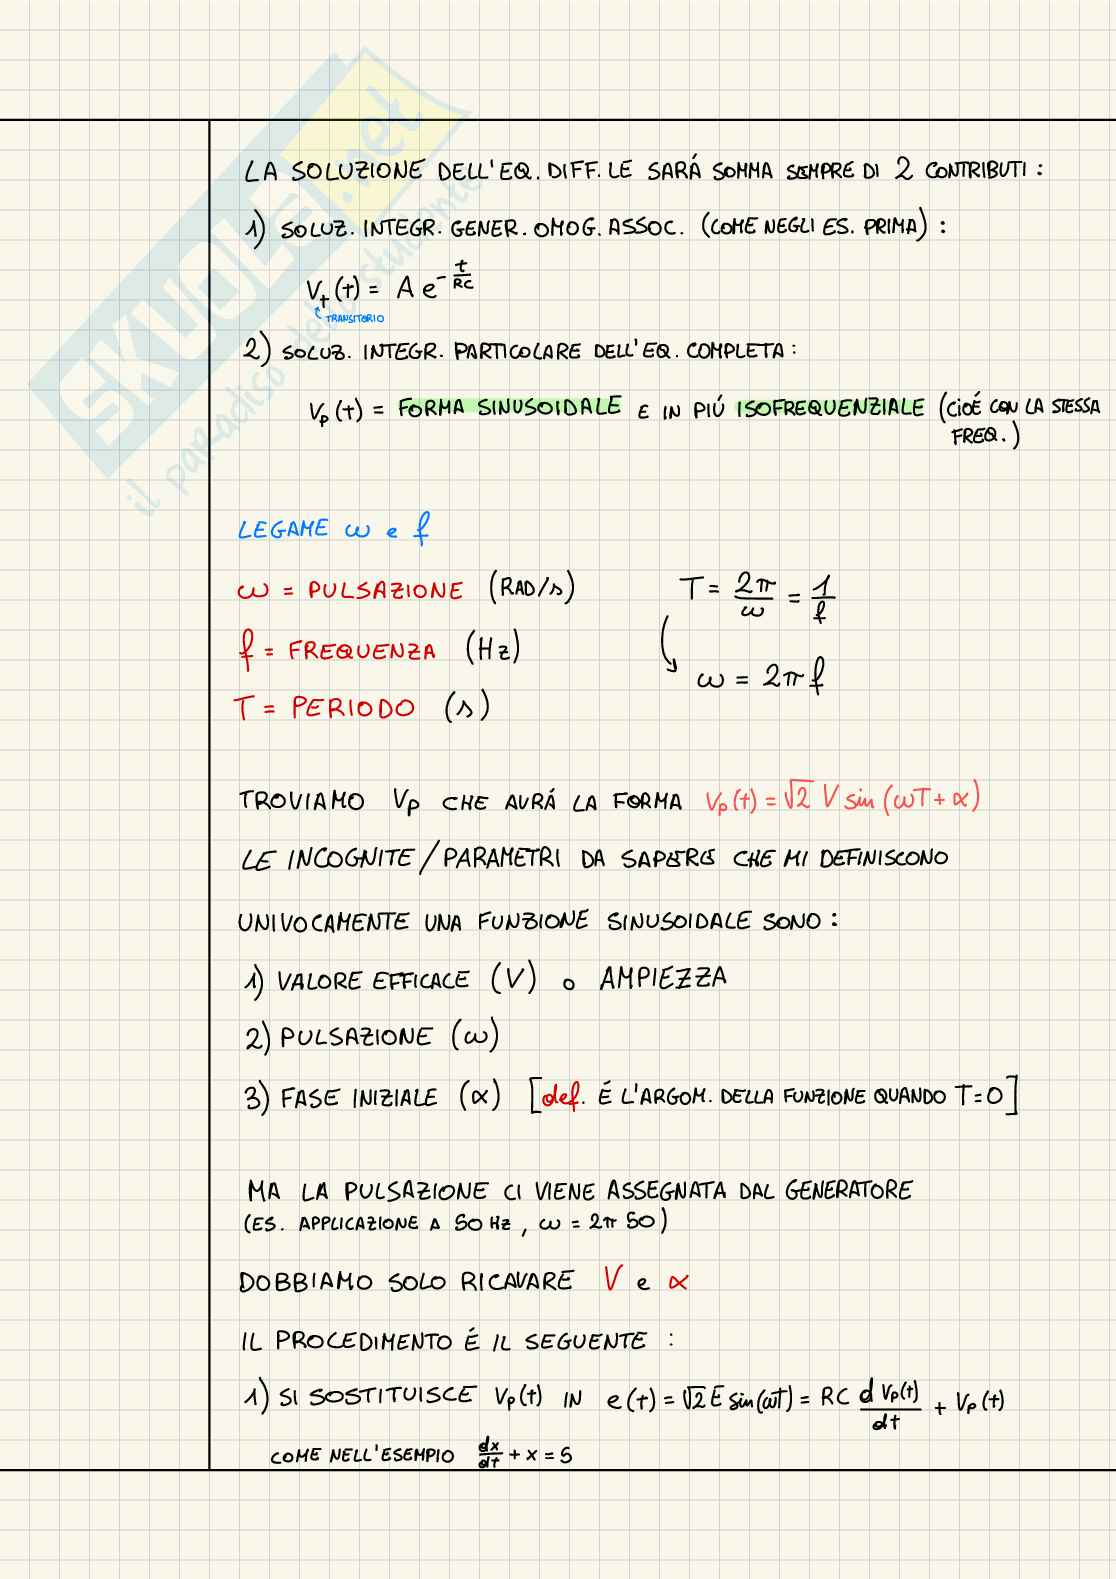 SKUOLA.net
il paradiso dello studente
LA SOLUZIONE DELL'EQ. DIFF. LE SARÁ SOMMA SEMPRE DI 2 CONTRIBUTI :
1) SOLUZ. INTEGR. GENER. OMOG. ASSOC. (COME NEGLI ES. PRIMA) :
V_t (t) = A e^{-t/RC}
TRANSITORIO
2) SOLUZ. INTEGR. PARTICOLARE DELL'EQ. COMPLETA :
V_p (t) = FORMA SINUSOIDALE E IN PIÚ ISOFREQUENZIALE (CIOÉ CON LA STESSA
FREQ.)
LEGAME ω e f
ω = PULSAZIONE (RAD/s) T = 2π/ω = 1/f
f = FREQUENZA (Hz) ω = 2π f
T = PERIODO (s)
TROVIAMO V_p CHE AVRÁ LA FORMA V_p (t) = √2 V sin (ωT + α)
LE INCOGNITE / PARAMETRI DA SAPERE CHE MI DEFINISCONO
UNIVOCAMENTE UNA FUNZIONE SINUSOIDALE SONO :
1) VALORE EFFICACE (V) o AMPIEZZA
2) PULSAZIONE (ω)
3) FASE INIZIALE (α) [def. É L'ARGOM. DELLA FUNZIONE QUANDO T=0]
MA LA PULSAZIONE CI VIENE ASSEGNATA DAL GENERATORE
(ES. APPLICAZIONE A 50 Hz , ω = 2π 50)
DOBBIAMO SOLO RICAVARE V e α
IL PROCEDIMENTO É IL SEGUENTE :
1) SI SOSTITUISCE V_p(t) IN e(t) = √2 E sin(ωT) = RC d V_p(t)/dt + V_p (t)
COME NELL'ESEMPIO dx/dt + x = 5